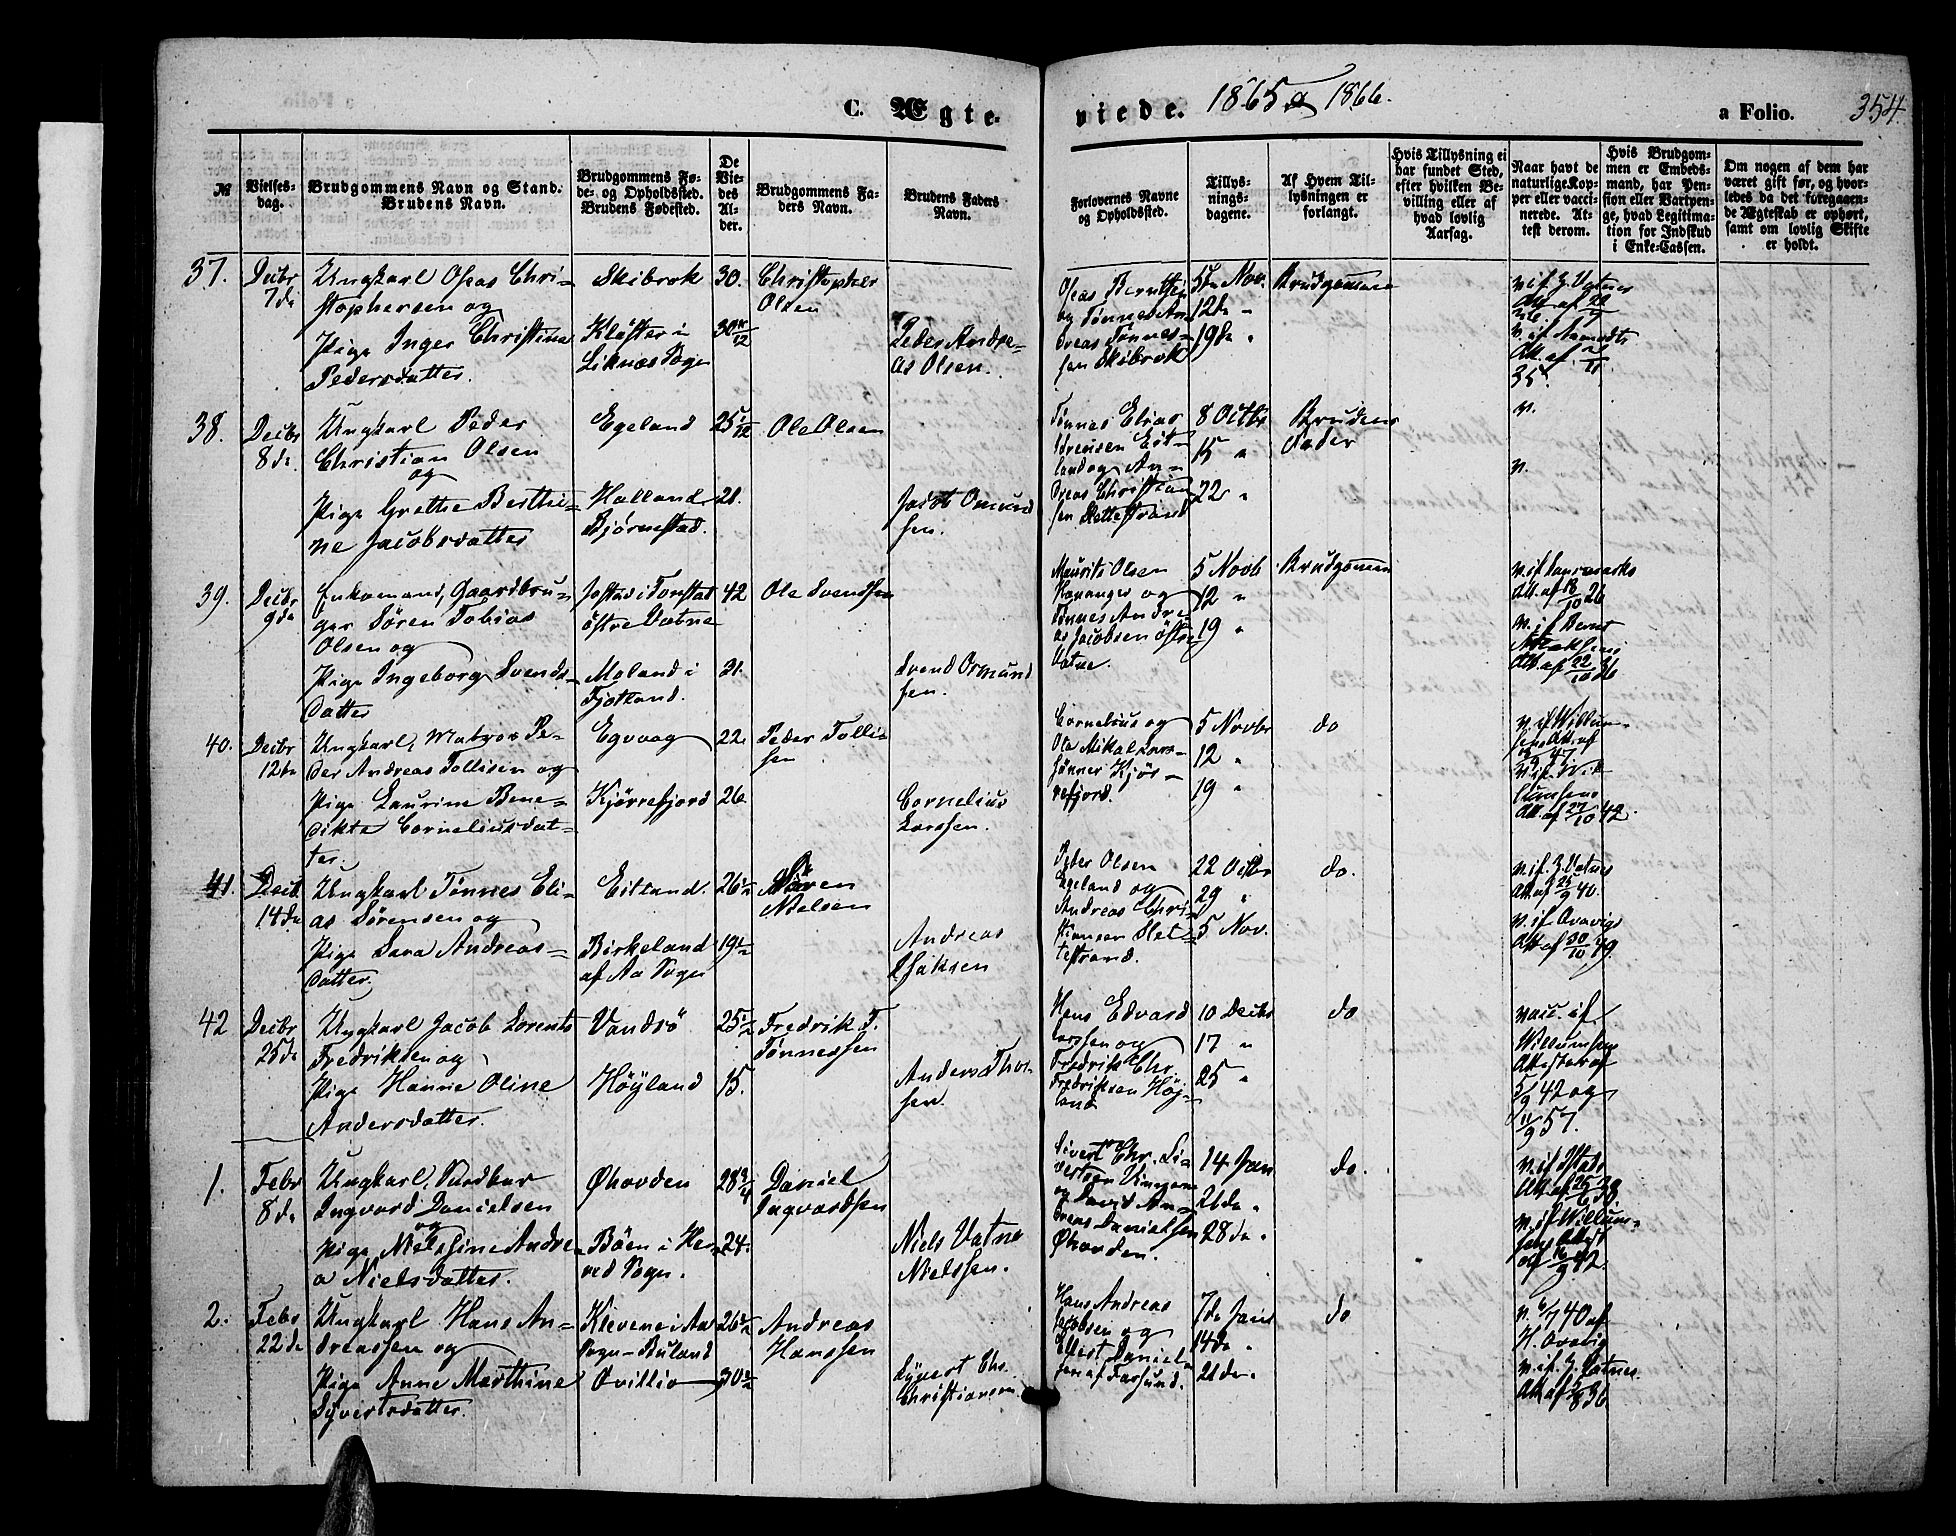 C. Ægte-
viede. 1865 og 1866.
a Folio. 354.
№
Vielses-
dag.
Brudgommens Navn og Stand.
Brudens Navn.
Brudgommens Fø-
de- og Opholdssted.
Brudens Fødested.
De
Vie-
des
Al-
der.
Brudgommens Fa-
ders Navn.
Brudens Faders
Navn.
Forlovernes Navne
og Opholdssted.
Tillys-
nings-
dagene.
Af Hvem Til-
lysningen er
forlangt.
Hvis Tillysning ei
har fundet Sted,
efter hvilken Be-
villing eller af
hvad lovlig
Aarsag.
Naar havt de
naturlige Kop-
per eller vacci-
nerede. At-
test derom.
Hvis Brudgom-
men er Embeds-
mand, har Pen-
sion eller Vartpen-
ge, hvad Legitima-
tion for Indskud
i Enke-Cassen.
Om nogen af dem har
været gift før, og hvor-
ledes da det foregaaen-
de Ægteskab er ophørt,
samt om lovlig Skifte
er holdt.
37.
Decbr
7de
Ungkarl Oseas Chri-
stophersen og
Pige Inger Christine
Pedersdatter.
Skibrok
Kløster i
Liknæs Sogn
30.
30
Christopher
Olsen
Peder Andre-
as Olsen.
Oseas Berntsen
og Tønnes An-
dreas Tønnes-
sen Skibrok
5te Nov.
12te "
19de "
Brudgommen
v. if. Z. Vatnes
Att. af
v. if. Aamodts
Att. af
35.
38.
Decbr
8de
Ungkarl Peder
Christian Olsen
og
Pige Grethe Berthi-
ne Jacobsdatter
Egeland
Halland
Bjørnestad.
25
21.
Ole Olsen
Jacob Omund
sen.
Tønnes Elias
Sørensen Eit-
land og An-
dreas Christian
sen Slettestrand
8 Octbr
15 "
22 "
Brudens
Fader
v.
v.
39.
Decbr
9de
Enkemand, Gaardbru-
ger Søren Tobias
Olsen og
Pige Ingeborg Svends-
datter
Josdal i Tonstad
østre Vatne
Moland i
Fjotland.
42
31.
Ole Svendsen
Svend Omund
sen.
Maurits Olsen
og
Tønnes Andre
as Jacobsen østre
Vatne.
5 Novb
12 "
19 "
Brudgommen
v. if. Danemarks
Att. af 18/10 26
v. if. Bernt
Att. af 22/10 36
40.
Decbr
12te
Ungkarl, Matros Pe-
der Andreas Tollisen og
Pige Laurine Bene-
dikte Corneliusdat-
ter.
Egvaag
Kjørrefjord
22.
26.
Peder Tolli
sen
Cornelius
Larssen.
Cornelius og
Ole Mikal Lars-
sønner Kjør-
refjord.
5 Novbr
12 "
19 "
do
v. if. Willum-
sens Att. af
47
v. if. Wil-
lumsens
Att. af 27/10 42.
41.
Decb
14de
Ungkarl Tønnes Eli-
as Sørensen og
Pige Sara Andreas-
datter.
Eitland.
Birkeland
af Aa Sogn
26½
19½
Søren
Nielsen
Andreas
Isaksen
Peder Olsen
Egeland og
Andreas Chri-
stiansen Slet-
testrand.
22 Octbr
29 "
5 Nov.
do.
v. if. Z. Vatnes
Att. af 25/9 40.
v. if. Oravigs
Att. af 30/10 49.
42
Decbr
25de
Ungkarl Jacob Lorents
Fredriksen og
Pige Hanne Oline
Andersdatter.
Vandsø
Høyland
25½
15.
Fredrik T.
Tønnessen
Anders Thor
sen.
Hans Edvard
Larssen og
Fredrik Chr.
Fredriksen Høy-
land
10 Decbr
17 "
25 "
do
vacc. if.
Willumsens
Attester af
5/9 42 og
11/9 57.
1.
Febr
8de
Ungkarl, Snedker
Ingvard Danielsen
og
Pige Nielsine Andre-
a Nielsdatter.
Øhovden
Böen i He-
red Sogn.
28¾
24.
Daniel
Ingvardsen
Niels Vatne
Nielssen.
Sivert Chr. Si-
vertsen
og David An-
dreas Danielsen
Øhovden.
14 Jan
21de "
28de "
do.
v. if.
Att. af 25/6 38.
v. if. Willum-
sens Attest
af 16/9 42.
2.
Febr
22de
Ungkarl Hans An-
dreassen og
Pige Anne Marthine
Syvertsdatter.
Klevene i Aa
Sogn - Buland
Ovillio
26½
30½
Andreas
Hanssen
Syvert Chr.
Christiansen
Hans Andreas
Jacobsen og
Daniel-
sen af Farsund.
7de Jan
14de "
21de "
do
v. 6/7 40 af
H. Oravig
v. if. Z. Vatnes
Att. af 5/8 36